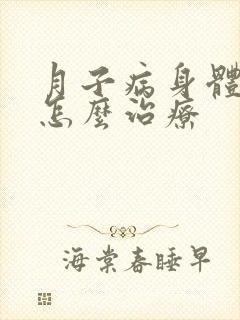 月子病身體
怎麼治療
海棠春睡早